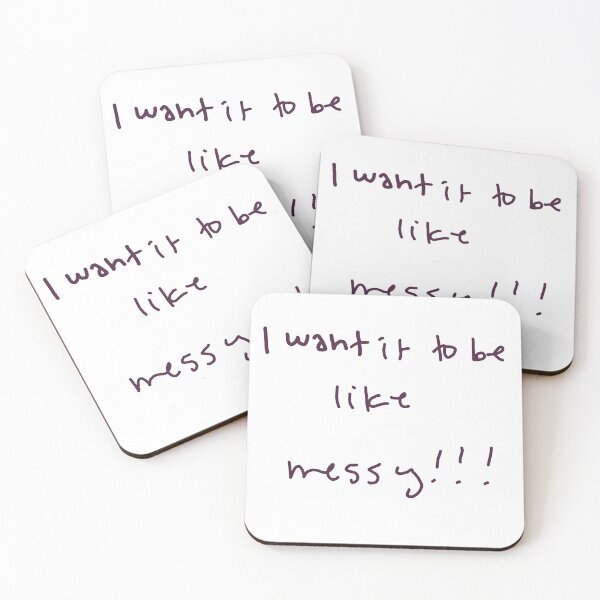 I want it to be
like
!!
I want it to be
like
messy!!!
I want it to be
like
messy
I want it to be
like
messy!!!